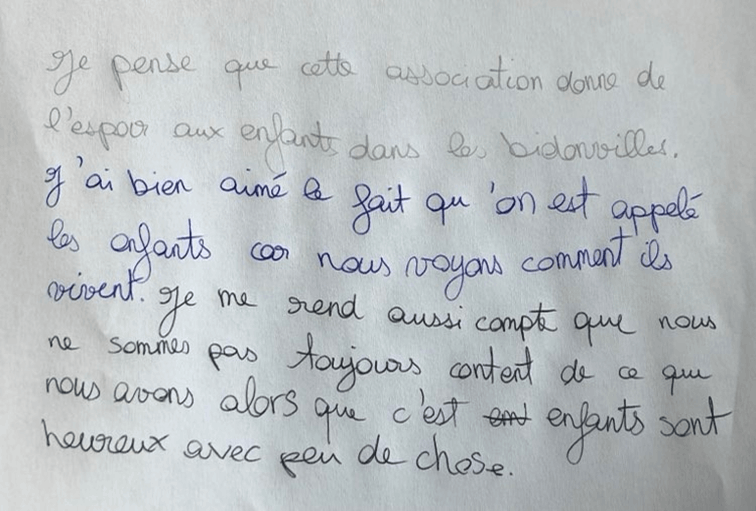 Je pense que cette association donne de
l'espoir aux enfants dans les bidonvilles.
J'ai bien aimé le fait qu'on est appelé
les enfants car nous voyons comment ils
vivent. Je me rend aussi compte que nous
ne sommes pas toujours content de ce que
nous avons alors que c'est ent enfants sont
heureux avec peu de chose.